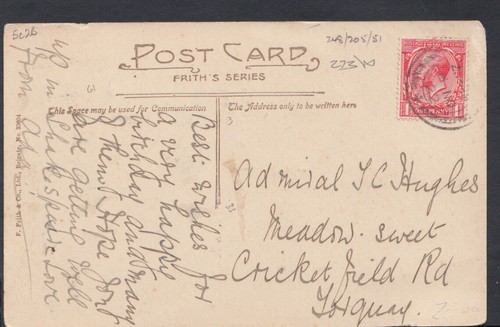 5c26
248/205/51
223N
POST CARD
FRITH'S SERIES
This Space may be used for Communication
The Address only to be written here
ONE PENNY
Best wishes for
a very happy
birthday and many
of them. Hope Dory
are getting well
up in Shakespeare love
from
Admiral T C Hughes
Meadow-sweet
Cricket field Rd
Torquay.
F. Frith & Co., Ltd., Reigate, No.